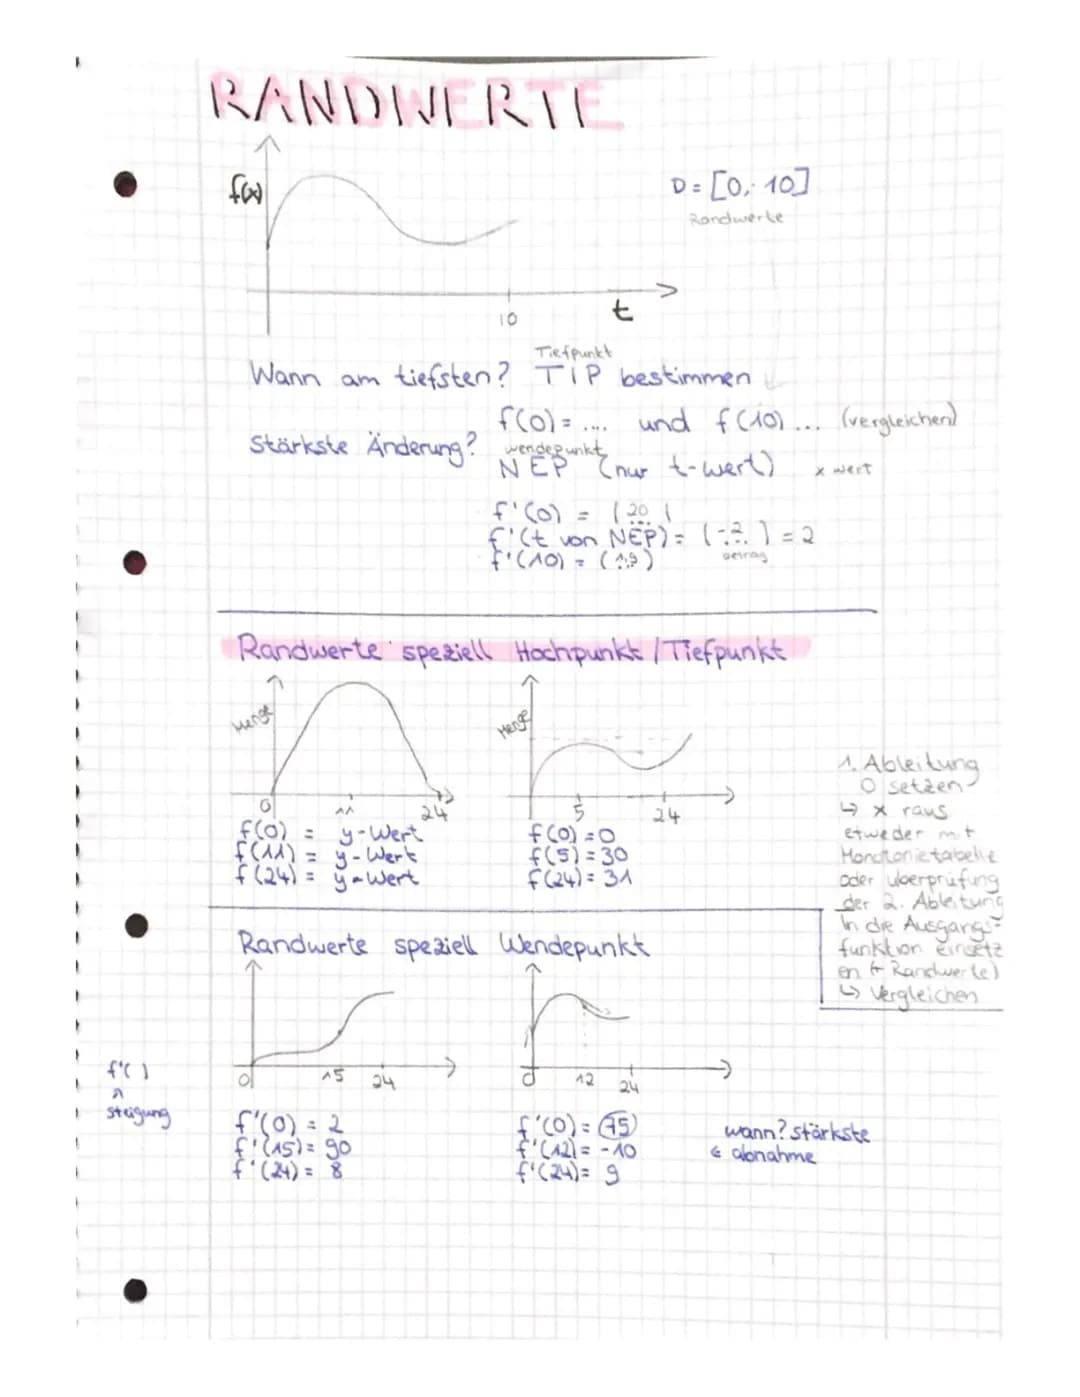 RANDWERTE
f(x)
D = [0; 10]
Randwerte
10
t
Tiefpunkt
Wann am tiefsten? TIP bestimmen
f(0) = .... und f(10) ... (vergleichen)
Stärkste Änderung?
wendepunkt
NEP (nur t-wert) x wert
f'(0) = | 20 |
f'(t von NEP) = (-2) = 2
betrag
f'(10) = (1,9)
Randwerte speziell Hochpunkt / Tiefpunkt
Menge
0 11 24
f(0) = y-Wert
f(11) = y-Wert
f(24) = y-Wert
Menge
5 24
f(0) = 0
f(5) = 30
f(24) = 31
1. Ableitung
0 setzen
↳ x raus
etweder mit
Monotonietabelle
oder überprüfung
der 2. Ableitung
In die Ausgangs-
funktion einsetz
en (+ Randwerte)
↳ Vergleichen
Randwerte speziell Wendepunkt
0 15 24
f'( )
steigung
f'(0) = 2
f'(15) = 90
f'(24) = 8
0 12 24
f'(0) = 75
f'(12) = -10
f'(24) = 9
wann? stärkste
abnahme